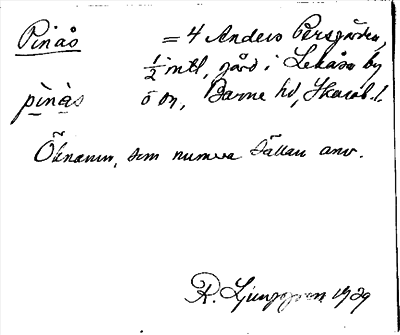 Pinås = 4 Anders Persgården,
1/2 mtl, gård i Lekåsa by
pìnås o sn, Barne hd, Skarab. l.
Öknamn, som numera sällan anv.
R. Ljunggren 1929